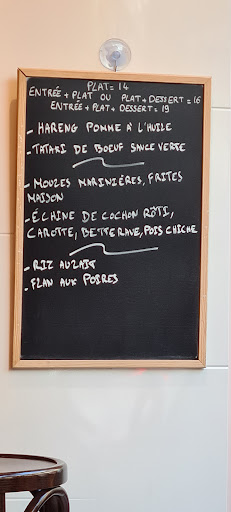 PLAT = 14
ENTRÉE + PLAT OU PLAT + DESSERT = 16
ENTRÉE + PLAT + DESSERT = 19
- HARENG POMME À L'HUILE
- TATAKI DE BOEUF SAUCE VERTE
- MOULES MARINIÈRES, FRITES
MAISON
- ÉCHINE DE COCHON RÔTI,
CAROTTE, BETTERAVE, POIS CHICHE
- RIZ AU LAIT
- FLAN AUX POIRES